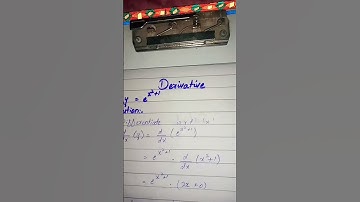 Derivative
y = e^{x²+1}
Differentiate w.r.t 'x'
d/dx (y) = d/dx (e^{x²+1})
= e^{x²+1} · d/dx (x²+1)
= e^{x²+1} · (2x + 0)